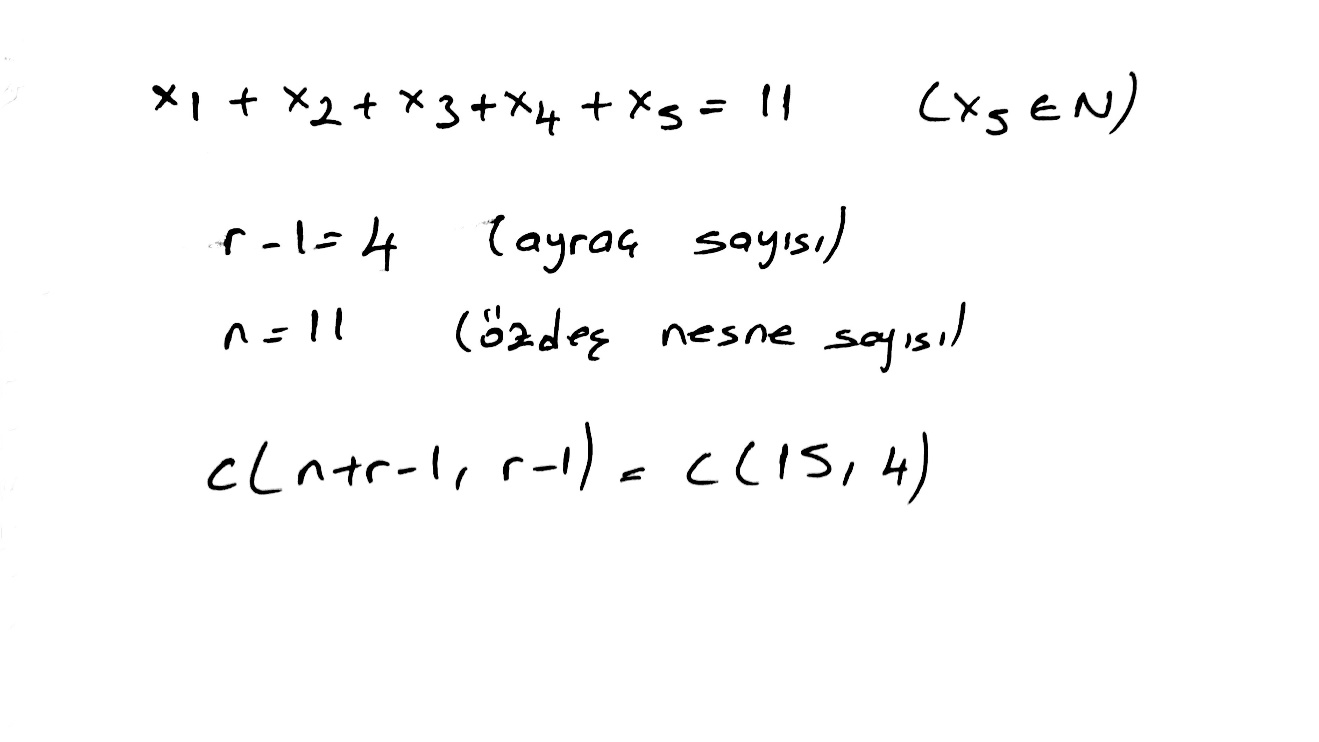 x1 + x2 + x3 + x4 + x5 = 11 (x5 ∈ N)
r - 1 = 4 (ayraç sayısı)
n = 11 (özdeş nesne sayısı)
c(n+r-1, r-1) = c(15, 4)